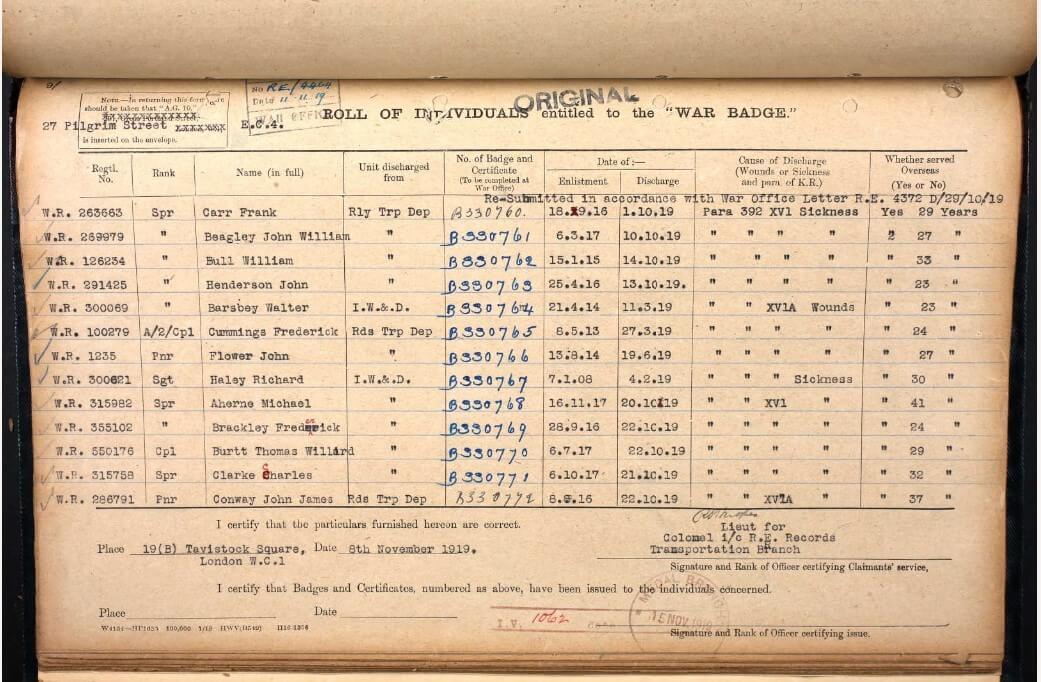 9/
No RE/4404
Date 11.11.19
WAR OFFICE
NOTE.—In returning this form
should be taken that "A.G. 10,"
27 Pilgrim Street E.C.4.
is inserted on the envelope.
ORIGINAL
ROLL OF INDIVIDUALS entitled to the "WAR BADGE."
Regtl. No. Rank Name (in full) Unit discharged from No. of Badge and Certificate (To be completed at War Office) Date of :— Enlistment. Discharge Cause of Discharge (Wounds or Sickness and para of K.R.) Whether served Overseas (Yes or No)
Re-Submitted in accordance with War Office Letter R.E. 4372 D/29/10/19
W.R. 263663 Spr Carr Frank Rly Trp Dep B330760. 18.9.16 1.10.19 Para 392 XVI Sickness Yes 29 Years
W.R. 269979 " Beagley John William " B330761 6.3.17 10.10.19 " " " " " 27 "
W.R. 126234 " Bull William " B330762 15.1.15 14.10.19 " " " " " 33 "
W.R. 291425 " Henderson John " B330763 25.4.16 13.10.19. " " " " " 23 "
W.R. 300069 " Barsbey Walter I.W.&.D. B330764 21.4.14 11.3.19 " " XVIA Wounds " 23 "
W.R. 100279 A/2/Cpl Cummings Frederick Rds Trp Dep B330765 8.5.13 27.3.19 " " " " " 24 "
W.R. 1235 Pnr Flower John " B330766 13.8.14 19.6.19 " " " " " 27 "
W.R. 300621 Sgt Haley Richard I.W.&.D. B330767 7.1.08 4.2.19 " " " Sickness " 30 "
W.R. 315982 Spr Aherne Michael " B330768 16.11.17 20.10.19 " " XVI " " 41 "
W.R. 355102 " Brackley Frederick " B330769 28.9.16 22.10.19 " " " " " 24 "
W.R. 550176 Cpl Burtt Thomas Willard " B330770 6.7.17 22.10.19 " " " " " 29 "
W.R. 315758 Spr Clarke Charles " B330771 6.10.17 21.10.19 " " " " " 32 "
W.R. 286791 Pnr Conway John James Rds Trp Dep B330772 8.9.16 22.10.19 " " XVIA " " 37 "
I certify that the particulars furnished hereon are correct.
Lieut for
Colonel i/c R.E. Records
Transportation Branch
Place 19(B) Tavistock Square, Date 8th November 1919.
London W.C.1
Signature and Rank of Officer certifying Claimants' service,
I certify that Badges and Certificates, numbered as above, have been issued to the individuals concerned.
Place Date
I.V. 1062
MEDAL
15 NOV 1919
Signature and Rank of Officer certifying issue.